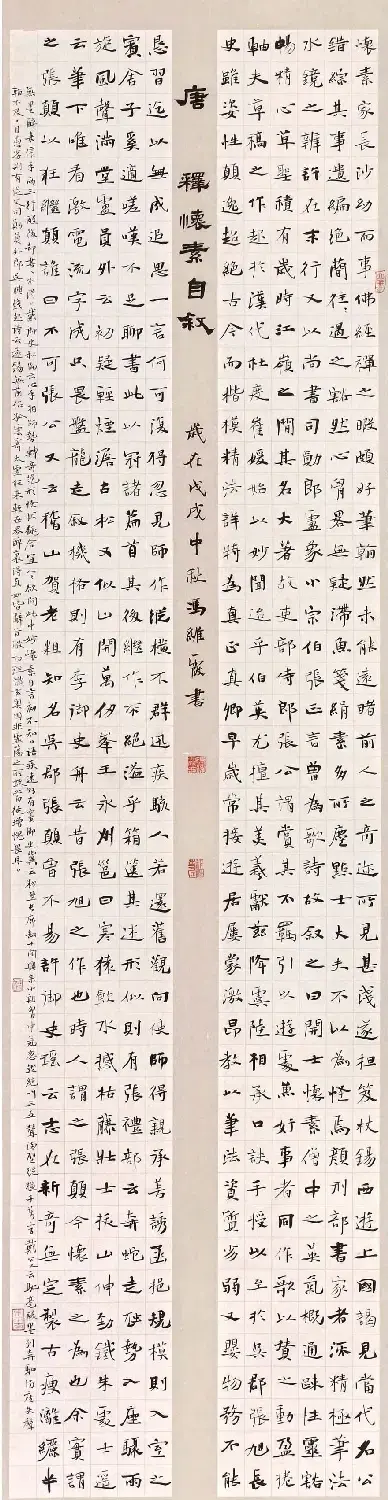 懷素家長沙幼而事佛經禪之暇頗好筆翰然未能遠睹前人之奇迹所見甚淺遂担笈杖錫西遊上國謁見當代名公
錯綜其事遺編絕簡往往遇之豁然心胷畧無疑滯魚箋絹素多所塵點士大夫不以為怪焉顏刑部書家者流精極筆法
水鏡之辨許在末行又以尚書司勳郎盧象小宗伯張正言曾為歌詩故叙之曰開士懷素僧中之英氣概通疎性靈豁
暢精心草聖積有歲時江嶺之間其名大著故吏部侍郎張公謂賞其不羈引以遊處兼好事者同作歌以贊之動盈卷
軸夫草稿之作起於漢代杜度崔瑗始以妙聞迨乎伯英尤擅其美羲獻茲降虞陸相承口訣手授以至於吳郡張旭長
史雖姿性顛逸超絕古今而楷模精法詳特為真正真卿早歲常接遊居屢蒙激昂教以筆法資質劣弱又嬰物務不能
唐 釋懷素自叙 歲在戊戌中秋馮維書
懇習迄以無成追思一言何可復得忽見師作縱橫不群迅疾駭人若還舊觀向使師得親承善誘函挹規模則入室之
賓舍子奚適嗟嘆不足聊書此以冠諸篇首其後繼作不絕溢乎箱篋其述形似則有張禮部云奔蛇走虺勢入座驟雨
旋風聲滿堂盧員外云初疑輕煙澹古松又似山開萬仞峯王永州邕曰寒猿飲水撼枯藤壯士拔山伸勁鐵朱處士遥
云筆下唯看激電流字成只畏盤龍走叙機格則有李御史舟云昔張旭之作也時人謂之張顛今懷素之為也余實謂
之張顛以狂繼顛誰曰不可張公又云稽山賀老粗知名吳郡張顛曾不易許御史瑤云志在新奇無定製古瘦漓纚半
無墨醉來信手兩三行醒後却書書不得戴御史叔倫云心手相師勢轉奇詭形怪狀翻合宜人人欲問此中妙懷素自言初不知語疾速則有竇御史冀云粉壁長廊數十間興來小豁胸中氣忽然絕叫三五聲滿壁縱橫千萬字戴公又云馳毫驟墨列奔駟滿座失聲
看不及目愚劣則有從父司勳員外郎吳興錢起詩云遠錫無前侶孤雲寄太虛狂來輕世界醉裏得真如皆辭旨激切理識玄奧固非虛蕩之所敢當徒增愧畏耳